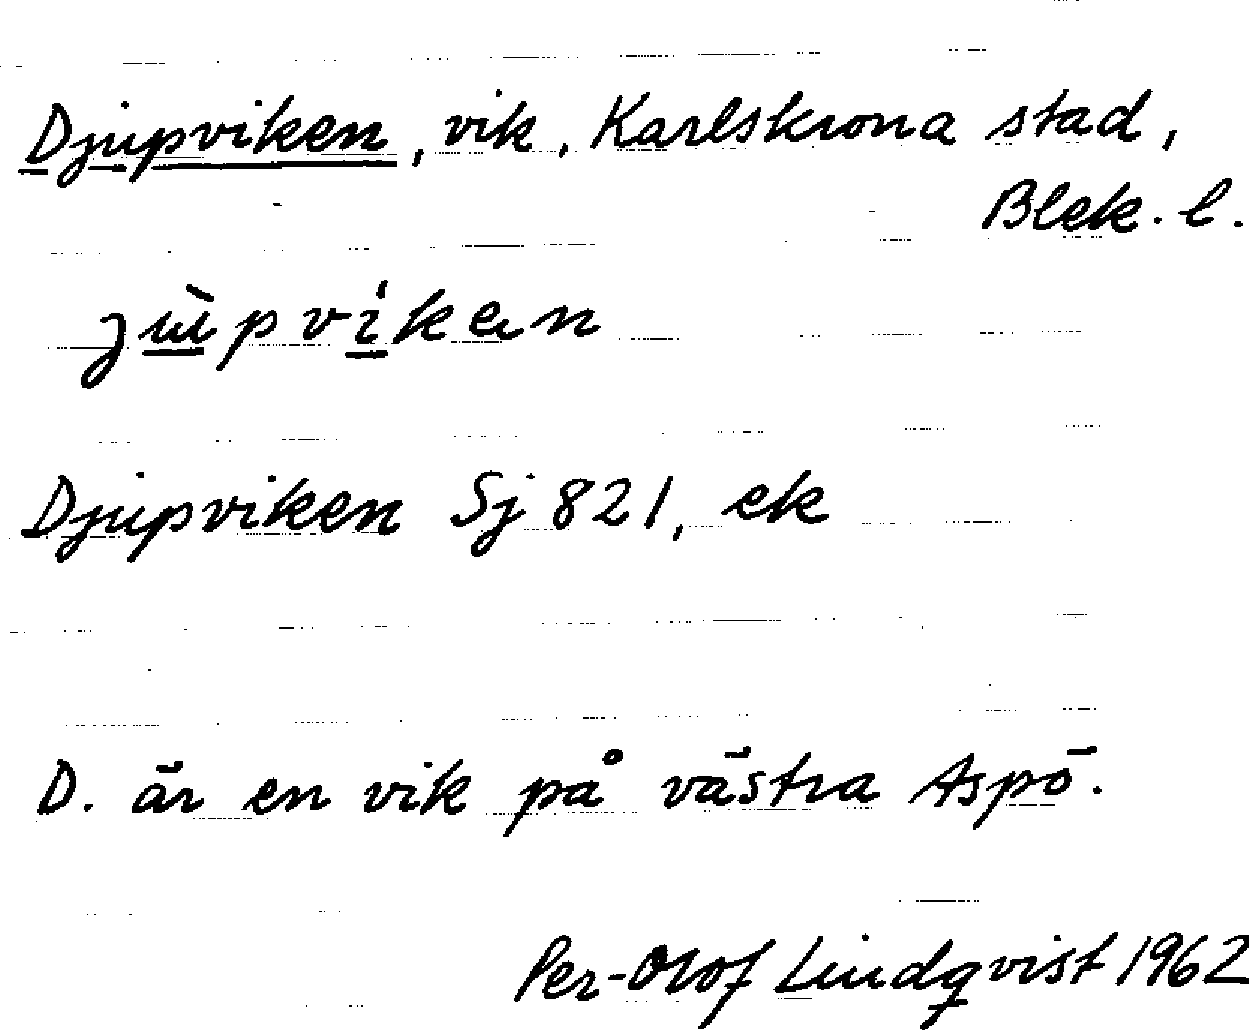 Djupviken, vik, Karlskrona stad,
Blek. l.
jùpvíkan
Djupviken Sj 821, ek
D. är en vik på västra Aspö.
Per-Olof Lindqvist 1962